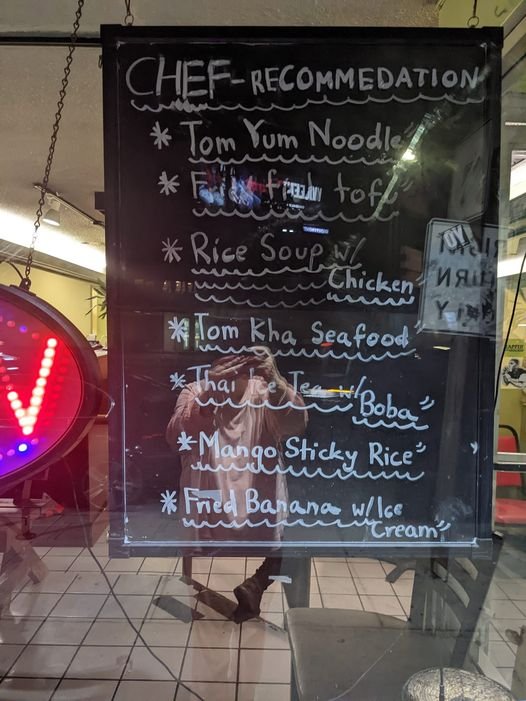 CHEF-RECOMMEDATION
* Tom Yum Noodle
* tofu
* Rice Soup w/
Chicken"
* Tom Kha Seafood
* Thai Ice Tea w/
Boba"
* Mango Sticky Rice"
* Fried Banana w/Ice
Cream"